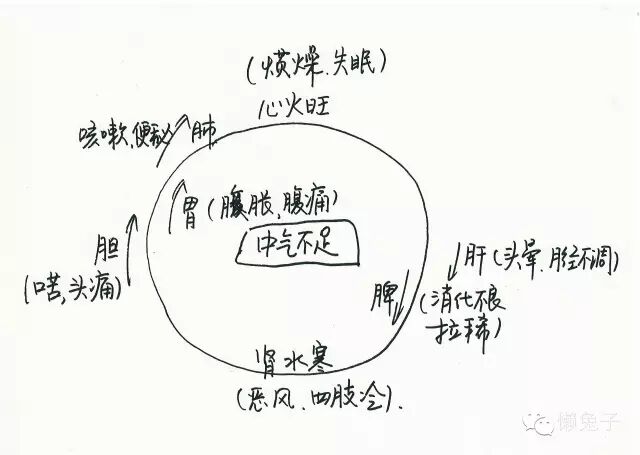 (烦燥.失眠)
心火旺
咳嗽,便秘 肺
胃 (腹胀,腹痛)
中气不足
胆
(口苦,头痛)
肝(头晕.月经不调)
脾
(消化不良
拉稀)
肾水寒
(恶风.四肢冷).
懒兔子